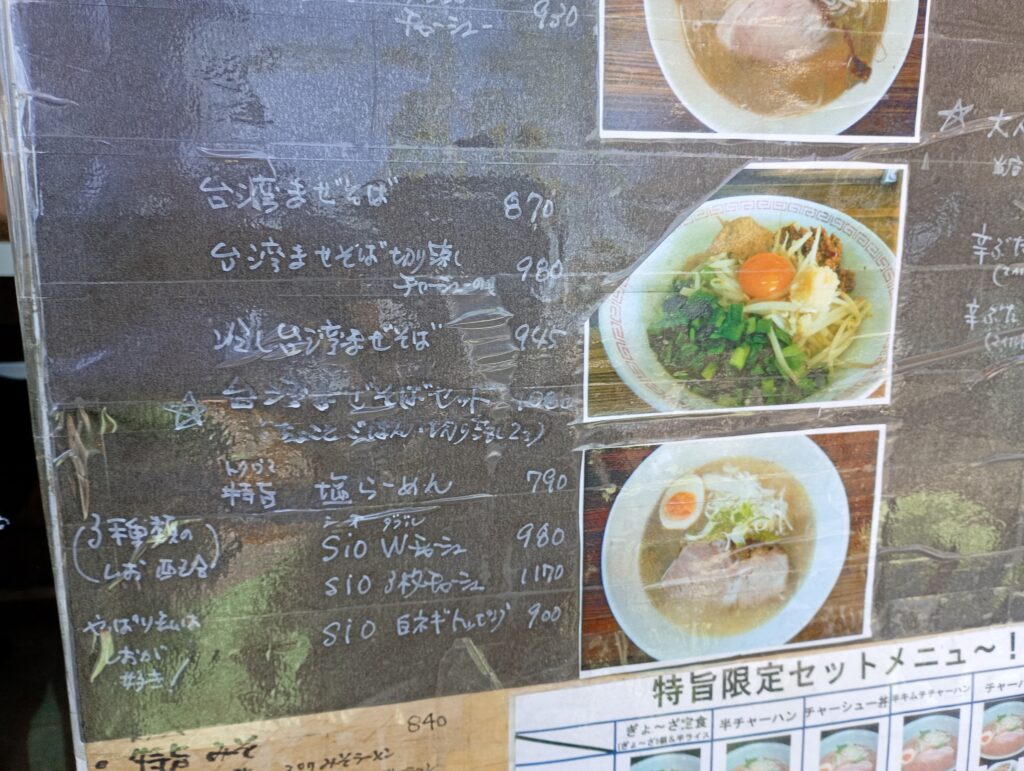 チャーシュー 930
台湾まぜそば 870
台湾まぜそば切り落し 980
チャーシューのせ
冷し台湾まぜそば 945
☆ 台湾まぜそばセット 1080
(ちょこっとごはん・切り落し2コ)
トクウマ
特旨 塩らーめん 790
シオ ダブル
(3種類の しお配合)
sio Wチャーシュー 980
sio 3枚チャーシュー 1170
sio 白ネギトッピング 900
やっぱり私は
しおが
好き!
☆ 大
辛ぶた
辛ぶた
特旨限定セットメニュ～!
ぎょ～ざ定食
(ぎょ～ざ5個&半ライス)
半チャーハン
チャーシュー丼
半キムチチャーハン
チャーハ
840
特旨 みそ